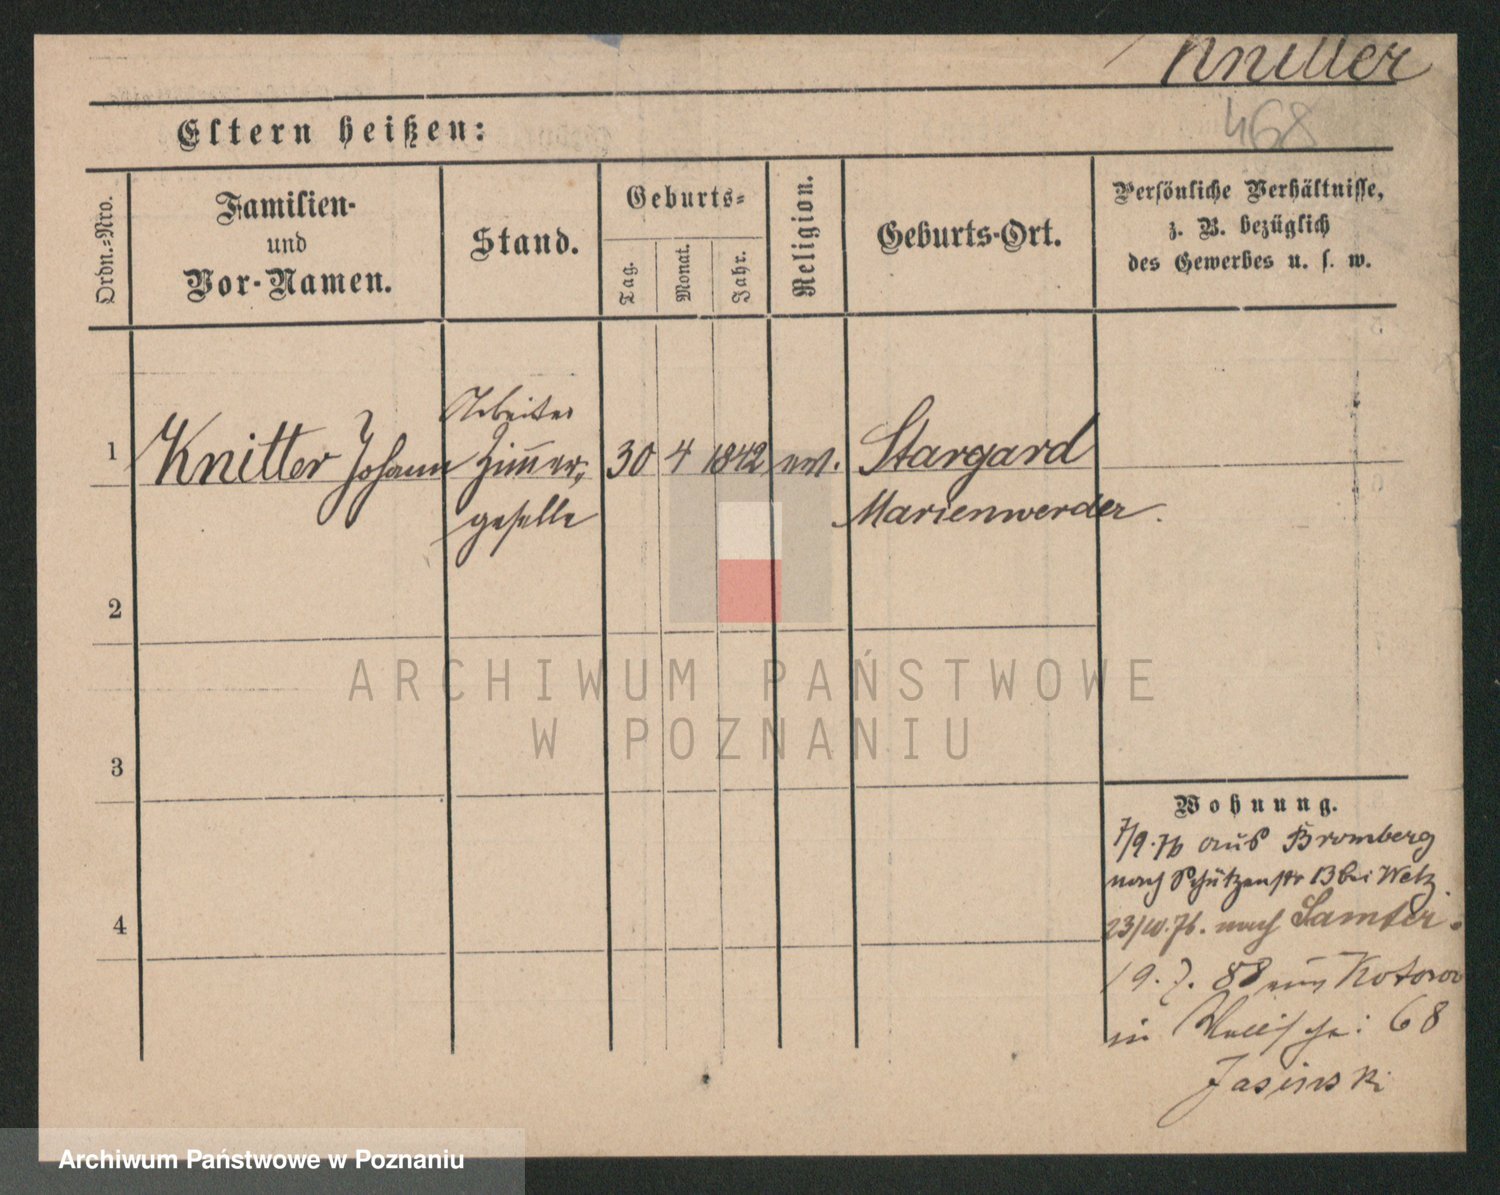 Knitter
468
Eltern heißen:
Ordn.=Nro.
Familien-
und
Vor-Namen.
Stand.
Geburts=
Tag.
Monat.
Jahr.
Religion.
Geburts-Ort.
Persönliche Verhältnisse,
z. B. bezüglich
des Gewerbes u. s. w.
Arbeiter
1 Knitter Johann Zimmer- 30 4 1842 ev. Stargard
geselle Marienwerder.
2
3
4
Wohnung.
7/9.76 aus Bromberg
nach Schützenstr 13 bei Welz.
23/10.76. nach Samter.
19.7.88 aus Kotowo
in Wallische: 68
Jasinski
ARCHIWUM PAŃSTWOWE
W POZNANIU
Archiwum Państwowe w Poznaniu